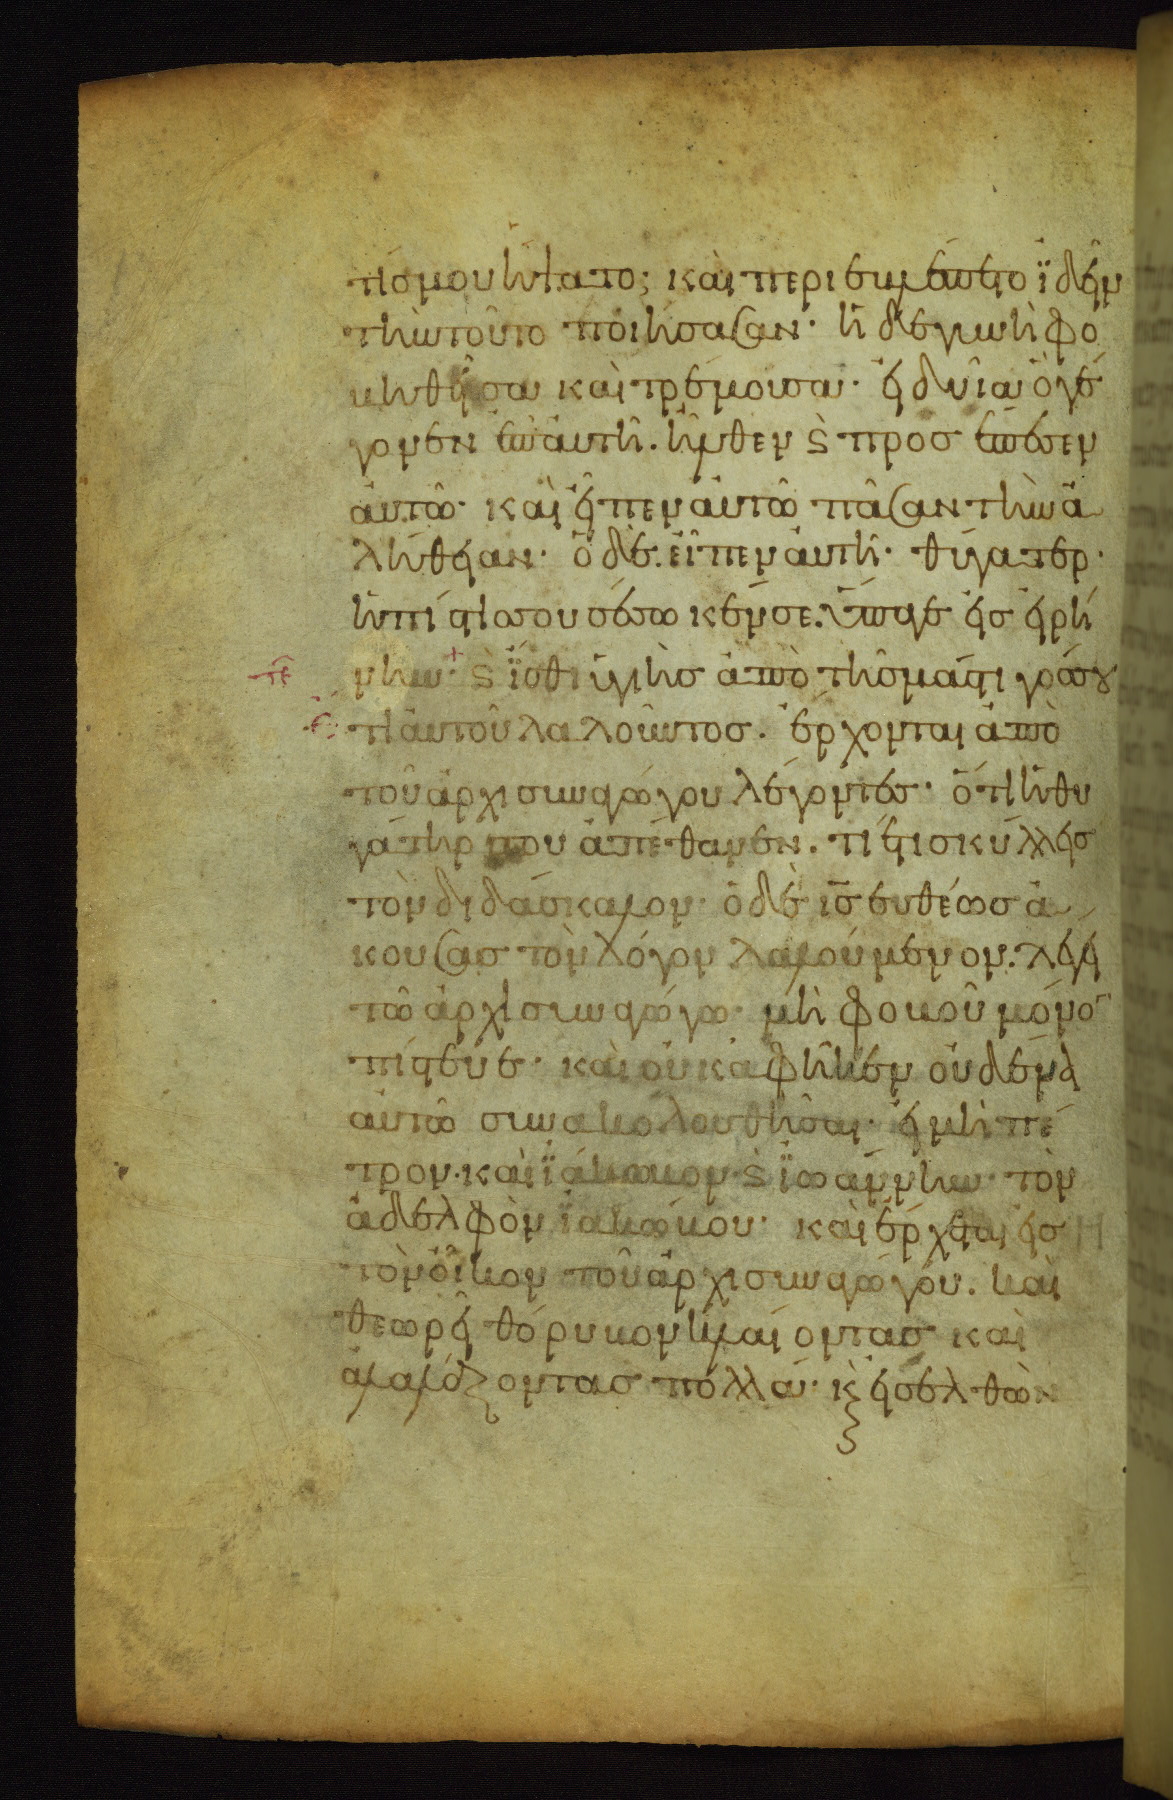 τίς μου ἥψατο; καὶ περιεβλέπετο ἰδεῖν
τὴν τοῦτο ποιήσασαν· ἡ δὲ γυνὴ φο
βηθεῖσα καὶ τρέμουσα· εἰδυῖα ὃ γέ
γονεν ἐπ' αὐτῆ. ἦλθεν ϗ προσέπεσεν
αὐτῶ· καὶ εἶπεν αὐτῶ πᾶσαν τὴν ἀ
λήθειαν· ὁ δὲ. εἶπεν αὐτῆ· θύγατερ·
ἡ πίστις σου σέσωκέν σε. ὕπαγε εἰς εἰρή
νην· ϗ ἴσθι ὑγιὴς ἀπὸ τῆς μάστιγός σου
τ̑ε
τι αὐτοῦ λαλοῦντος. ἔρχονται ἀπὸ
τοῦ ἀρχισυναγώγου λέγοντες· ὅτι ἡ θυ
γάτηρ σου ἀπέθανεν. τί ἔτι σκύλλεις
τὸν διδάσκαλον· ὁ δὲ ι̅ς̅ εὐθέως ἀ
κούσας τὸν λόγον λαλούμενον. λέγει
τῶ ἀρχισυναγώγω· μὴ φοβοῦ μόνο
πίστευε· καὶ οὐκ ἀφῆκεν οὐδένα
αὐτῶ συνακολουθῆσαι· εἰ μὴ πέ
τρον· καὶ ἰάκωβον ϗ ἰωάννην· τὸν
ἀδελφὸν ἰακώβου· καὶ ἔρχεται εἰς
τὸν οἶκον τοῦ ἀρχισυναγώγου. καὶ
θεωρεῖ θόρυβον κλαίοντας καὶ
ἀλαλάζοντας πολλά· ϗ εἰσελθὼν